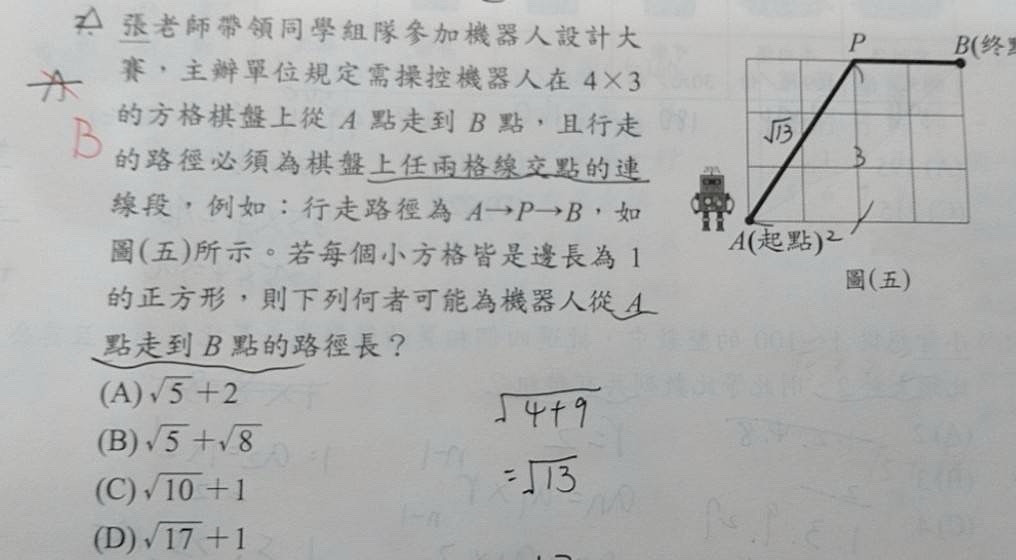 張老師帶領同學組隊參加機器人設計大
賽,主辦單位規定需操控機器人在 4×3
的方格棋盤上從 A 點走到 B 點,且行走
的路徑必須為棋盤上任兩格線交點的連
線段,例如:行走路徑為 A→P→B,如
圖(五)所示。若每個小方格皆是邊長為 1
的正方形,則下列何者可能為機器人從 A
點走到 B 點的路徑長?
(A) √5+2
(B) √5+√8
(C) √10+1
(D) √17+1
A
B
√4+9
=√13
P
B(終
√13
3
A(起點) 2
圖(五)